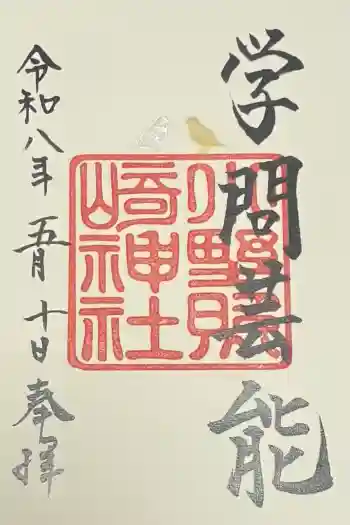 学問芸能
小野照崎神社
令和八年 五月 十日 奉拝